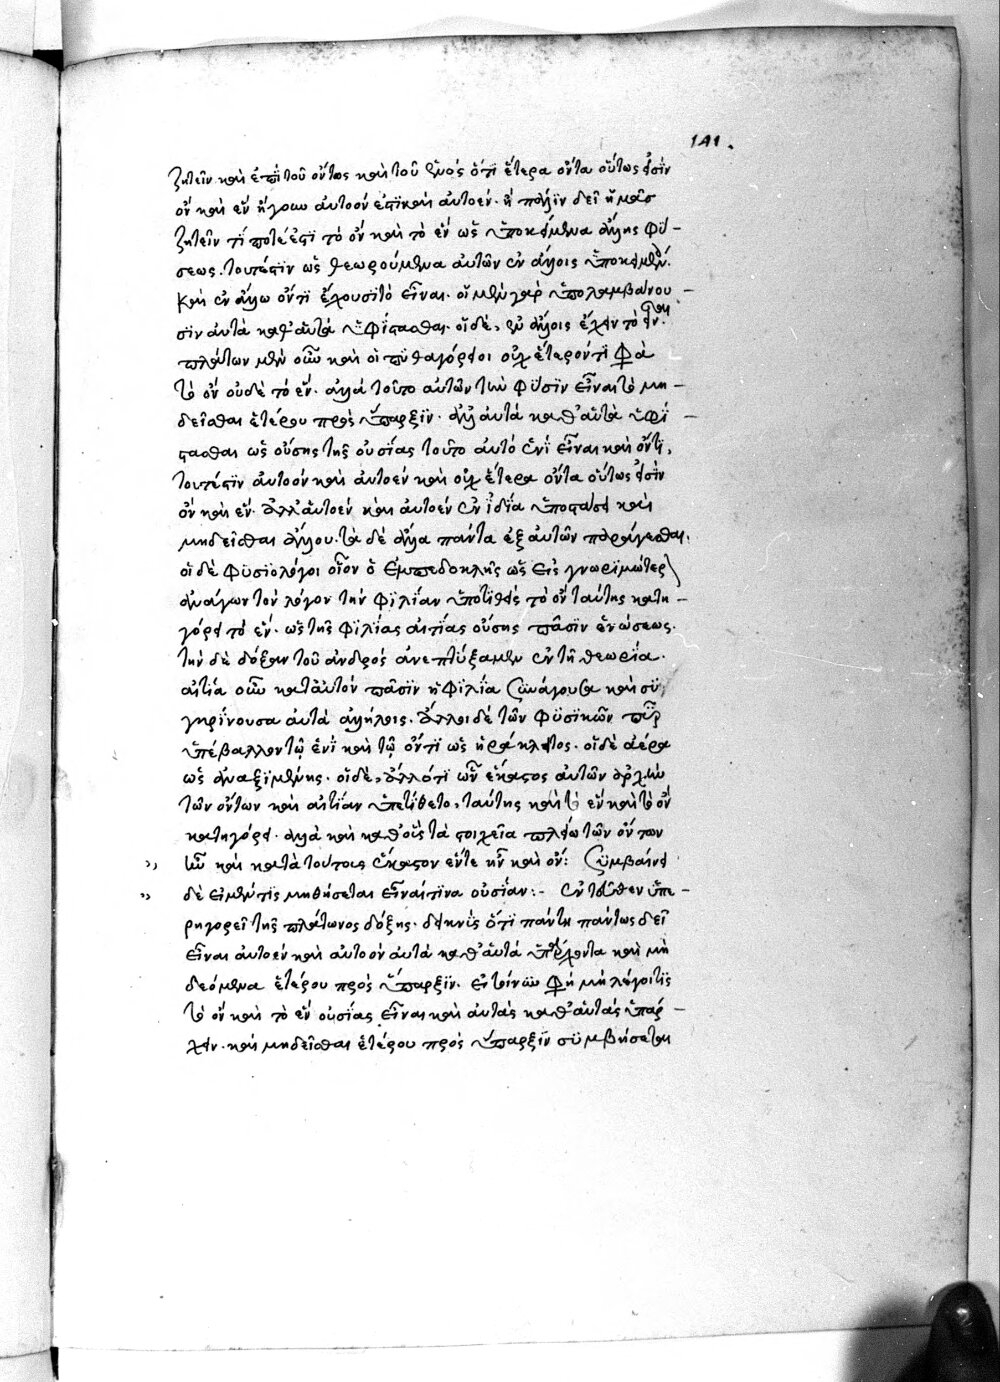 141.
ζητεῖν καὶ ἐπὶ τοῦ ὄντος καὶ τοῦ ἑνός ὅτι ἕτερα ὄντα οὕτως εἰσὶν
ὂν καὶ ἓν ἤγουν αὐτοόν ἐστι καὶ αὐτοέν. ἢ πάλιν δεῖ ἡμᾶς
ζητεῖν τί ποτέ ἐστι τὸ ὂν καὶ τὸ ἓν ὡς ὑποκειμένα ἄλλης φύ-
σεως. τουτέστιν ὡς θεωρούμενα αὐτῶν ἐν ἄλλοις ὑποκειμένων.
καὶ ἐν ἄλλω ὄντι ἔχουσι τὸ εἶναι. οἱ μὲν γὰρ ὑπολαμβάνου-
σιν αὐτὰ καθ' αὑτὰ ὑφίστασθαι. οἱ δὲ, ἐν ἄλλοις ἔχειν τὸ εἶναι.
πλάτων μὲν οὖν καὶ οἱ πυθαγόρειοι οὐχ ἕτερόν τι φασὶ
τὸ ὂν οὐδὲ τὸ ἕν. ἀλλὰ τοῦτο αὐτῶν τὴν φύσιν εἶναι τὸ μὴ
δεῖσθαι ἑτέρου πρὸς ὕπαρξιν. ἀλλ' αὐτὰ καθ' αὑτὰ ὑφί-
στασθαι ὡς οὔσης τῆς οὐσίας τοῦτο αὐτό ἑνὶ εἶναι καὶ ὄντι,
τουτέστιν αὐτοόν καὶ αὐτοέν καὶ οὐχ ἕτερα ὄντα οὕτως εἰσὶν
ὂν καὶ ἕν. ἀλλ' αὐτοέν καὶ αὐτοέν ἐν ἰδία ὑποστάσει καὶ
μὴ δεῖσθαι ἄλλου. τὰ δὲ ἄλλα πάντα ἐξ αὐτῶν παράγεσθαι.
οἱ δὲ φυσιολόγοι οἷον ὁ ἐμπεδοκλῆς ὡς εἰς γνωριμώτερον
ἀνάγων τὸν λόγον τὴν φιλίαν ὑποτιθεὶς τὸ ὂν ταύτης κατη-
γόρει τὸ ἕν. ὡς τῆς φιλίας αἰτίας οὔσης πᾶσιν ἑνώσεως.
τὴν δὲ δόξαν τοῦ ἀνδρὸς ἀνεπτύξαμεν ἐν τῆ θεωρία.
αἰτία οὖν κατ' αὐτὸν πᾶσιν ἡ φιλία συνάγουσα καὶ συ
γκρίνουσα αὐτὰ ἀλλήλοις. ἄλλοι δὲ τῶν φυσικῶν πῦρ
ὑπέβαλλον τῷ ἑνὶ καὶ τῷ ὄντι ὡς ἡράκλειτος. οἱ δὲ ἀέρα
ὡς ἀναξιμένης. οἱ δὲ, ἄλλό τι ὧν ἕκαστος αὐτῶν ἀρχὴν
τῶν ὄντων καὶ αἰτίαν ὑπετίθετο, ταύτης καὶ τὸ ἓν καὶ τὸ ὂν
κατηγόρει. ἀλλὰ καὶ καθ' οὓς τὰ στοιχεῖα πλείω τῶν ὄντων
ἦν καὶ κατὰ τούτους ἕκαστον ἕν τε ἦν καὶ ὄν: συμβαίνει
δὲ εἰ μέν τις μὴ θήσεται εἶναί τινα οὐσίαν:- ἐντεῦθεν ὑπε-
ρηγορεῖ τῆς πλάτωνος δόξης. δεικνὺς ὅτι πάντη πάντως δεῖ
εἶναι αὐτοέν καὶ αὐτοόν αὐτὰ καθ' αὑτὰ ὑπάρχοντα καὶ μὴ
δεόμενα ἑτέρου πρὸς ὕπαρξιν. εἰ τοίνυν φησὶ μὴ λέγοι τις
τὸ ὂν καὶ τὸ ἓν οὐσίας εἶναι καὶ αὐτὰς καθ' αὑτὰς ὑπάρ-
χειν. καὶ μὴ δεῖσθαι ἑτέρου πρὸς ὕπαρξιν συμβήσεται